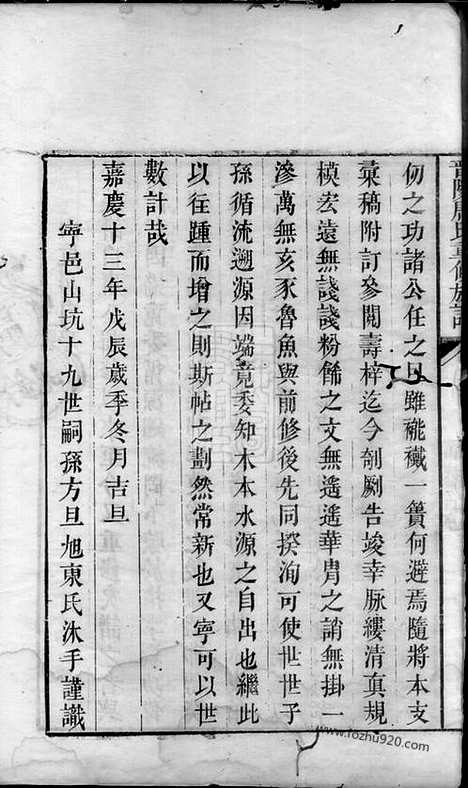 仞之功諸公任之旦雖襪襶一簣何避焉隨將本支
彙稿附訂參閱壽梓迄今剞劂告竣幸脉縷清真規
模宏遠無諓諓粉餙之文無遙遙華胄之誚無掛一
滲萬無亥豕魯魚與前修後先同揆洵可使世世子
孫循流遡源因端竟委知木本水源之自出也繼此
以往踵而增之則斯帖之劃然常新也又寧可以世
數計哉
嘉慶十三年戊辰歲季冬月吉旦
寧邑山坑十九世嗣孫方旦旭東氏沐手謹識
www.fozhu920.com